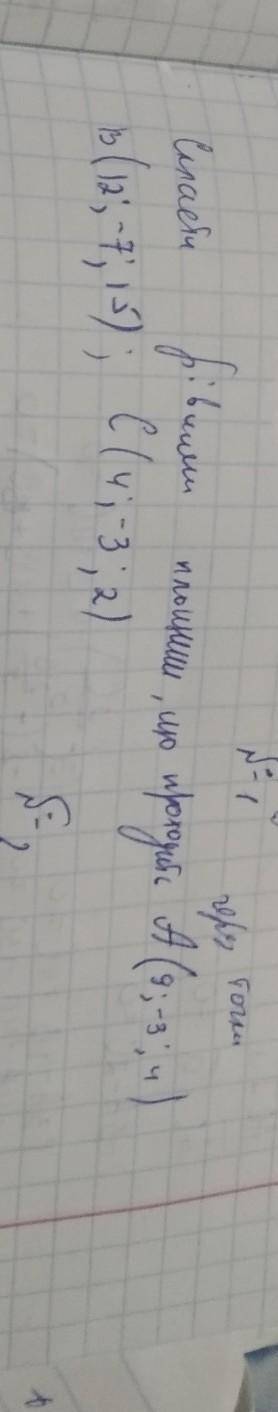 № 1
Скласти рівняння площини, що проходить через точки A(9; -3; 4)
B(12; -7; 15); C(4; -3; 2)
№ 2